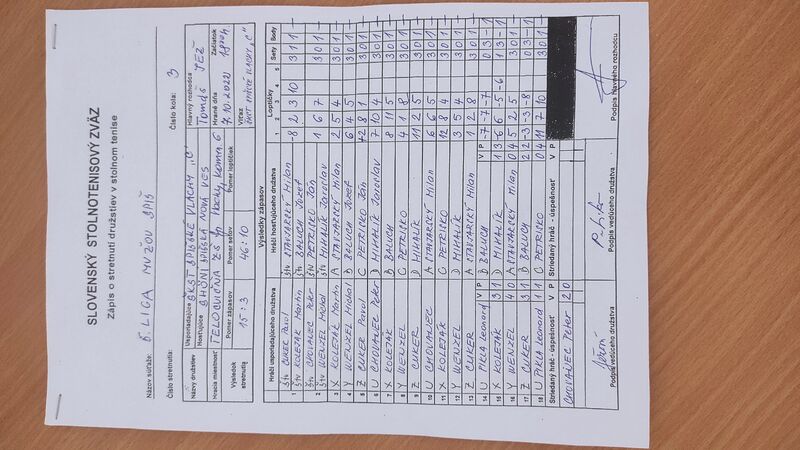 SLOVENSKÝ STOLNOTENISOVÝ ZVÄZ
Zápis o stretnutí družstiev v stolnom tenise
Názov súťaže: 5. LIGA MUŽOV SPIŠ
Číslo stretnutia: Číslo kola: 3
Názvy družstiev Usporiadajúce ŠKST SPIŠSKÉ VLACHY „C" Hlavný rozhodca
Hostujúce SPIŠSKÁ NOVÁ VES Tomáš JEŽ
Hracia miestnosť TELOCVIČŇA ZŠ Sp. Vlachy, Hrané dňa 7.10.2022 Začiatok
Výsledok stretnutia Pomer zápasov Pomer setov Pomer loptičiek Víťaz
15:3 46:10 VLACHY „C"
Výsledky zápasov
Hráči usporiadajúceho družstva Hráči hosťujúceho družstva Loptičky Sety Body
1 2 3 4 5
Štv CUKER Pavol Štv STAVIARSKÝ Milan
1 Štv KOLEJÁK Martin Štv BALUCH Jozef -8 2 3 10 3 1 1 -
Štv CHOVANEC Peter Štv PETRISKO Ján
2 Štv WENZEL Michal Štv MIHALÍK Jaroslav 1 6 7 3 0 1 -
3 X KOLEJÁK Martin A STAVIARSKÝ Milan 2 5 4 3 0 1 -
4 Y WENZEL Michal B BALUCH Jozef 6 4 5 3 0 1 -
5 Z CUKER Pavol C PETRISKO Ján 3 0 1 -
6 U CHOVANEC Peter D MIHALÍK Jaroslav 7 10 4 3 0 1 -
7 X KOLEJÁK B BALUCH 8 11 5 3 0 1 -
8 Y WENZEL C PETRISKO 4 1 8 3 0 1 -
9 Z CUKER D MIHALÍK 11 2 5 3 0 1 -
10 U CHOVANEC A STAVIARSKÝ Milan 6 6 5 3 0 1 -
11 X KOLEJÁK C PETRISKO 12 8 4 3 0 1 -
12 Y WENZEL D MIHALÍK 3 5 4 3 0 1 -
13 Z CUKER A STAVIARSKÝ Milan 1 2 8 3 0 1 -
14 U PIKLA Leonard V P B BALUCH V P -7 -7 -7 0 3 - 1
15 X KOLEJÁK 3 1 D MIHALÍK 1 3 -6 6 -5 -6 1 3 - 1
16 Y WENZEL 4 0 A STAVIARSKÝ Milan 0 4 5 2 5 3 0 1 -
17 Z CUKER 3 1 B BALUCH 2 2 -3 -3 -8 0 3 - 1
18 U PIKLA Leonard 1 1 C PETRISKO 0 4 11 7 10 3 0 1 -
Striedaný hráč - úspešnosť V P Striedaný hráč - úspešnosť V P
CHOVANEC Peter 2 0
Podpis vedúceho družstva Podpis vedúceho družstva Podpis hlavného rozhodcu